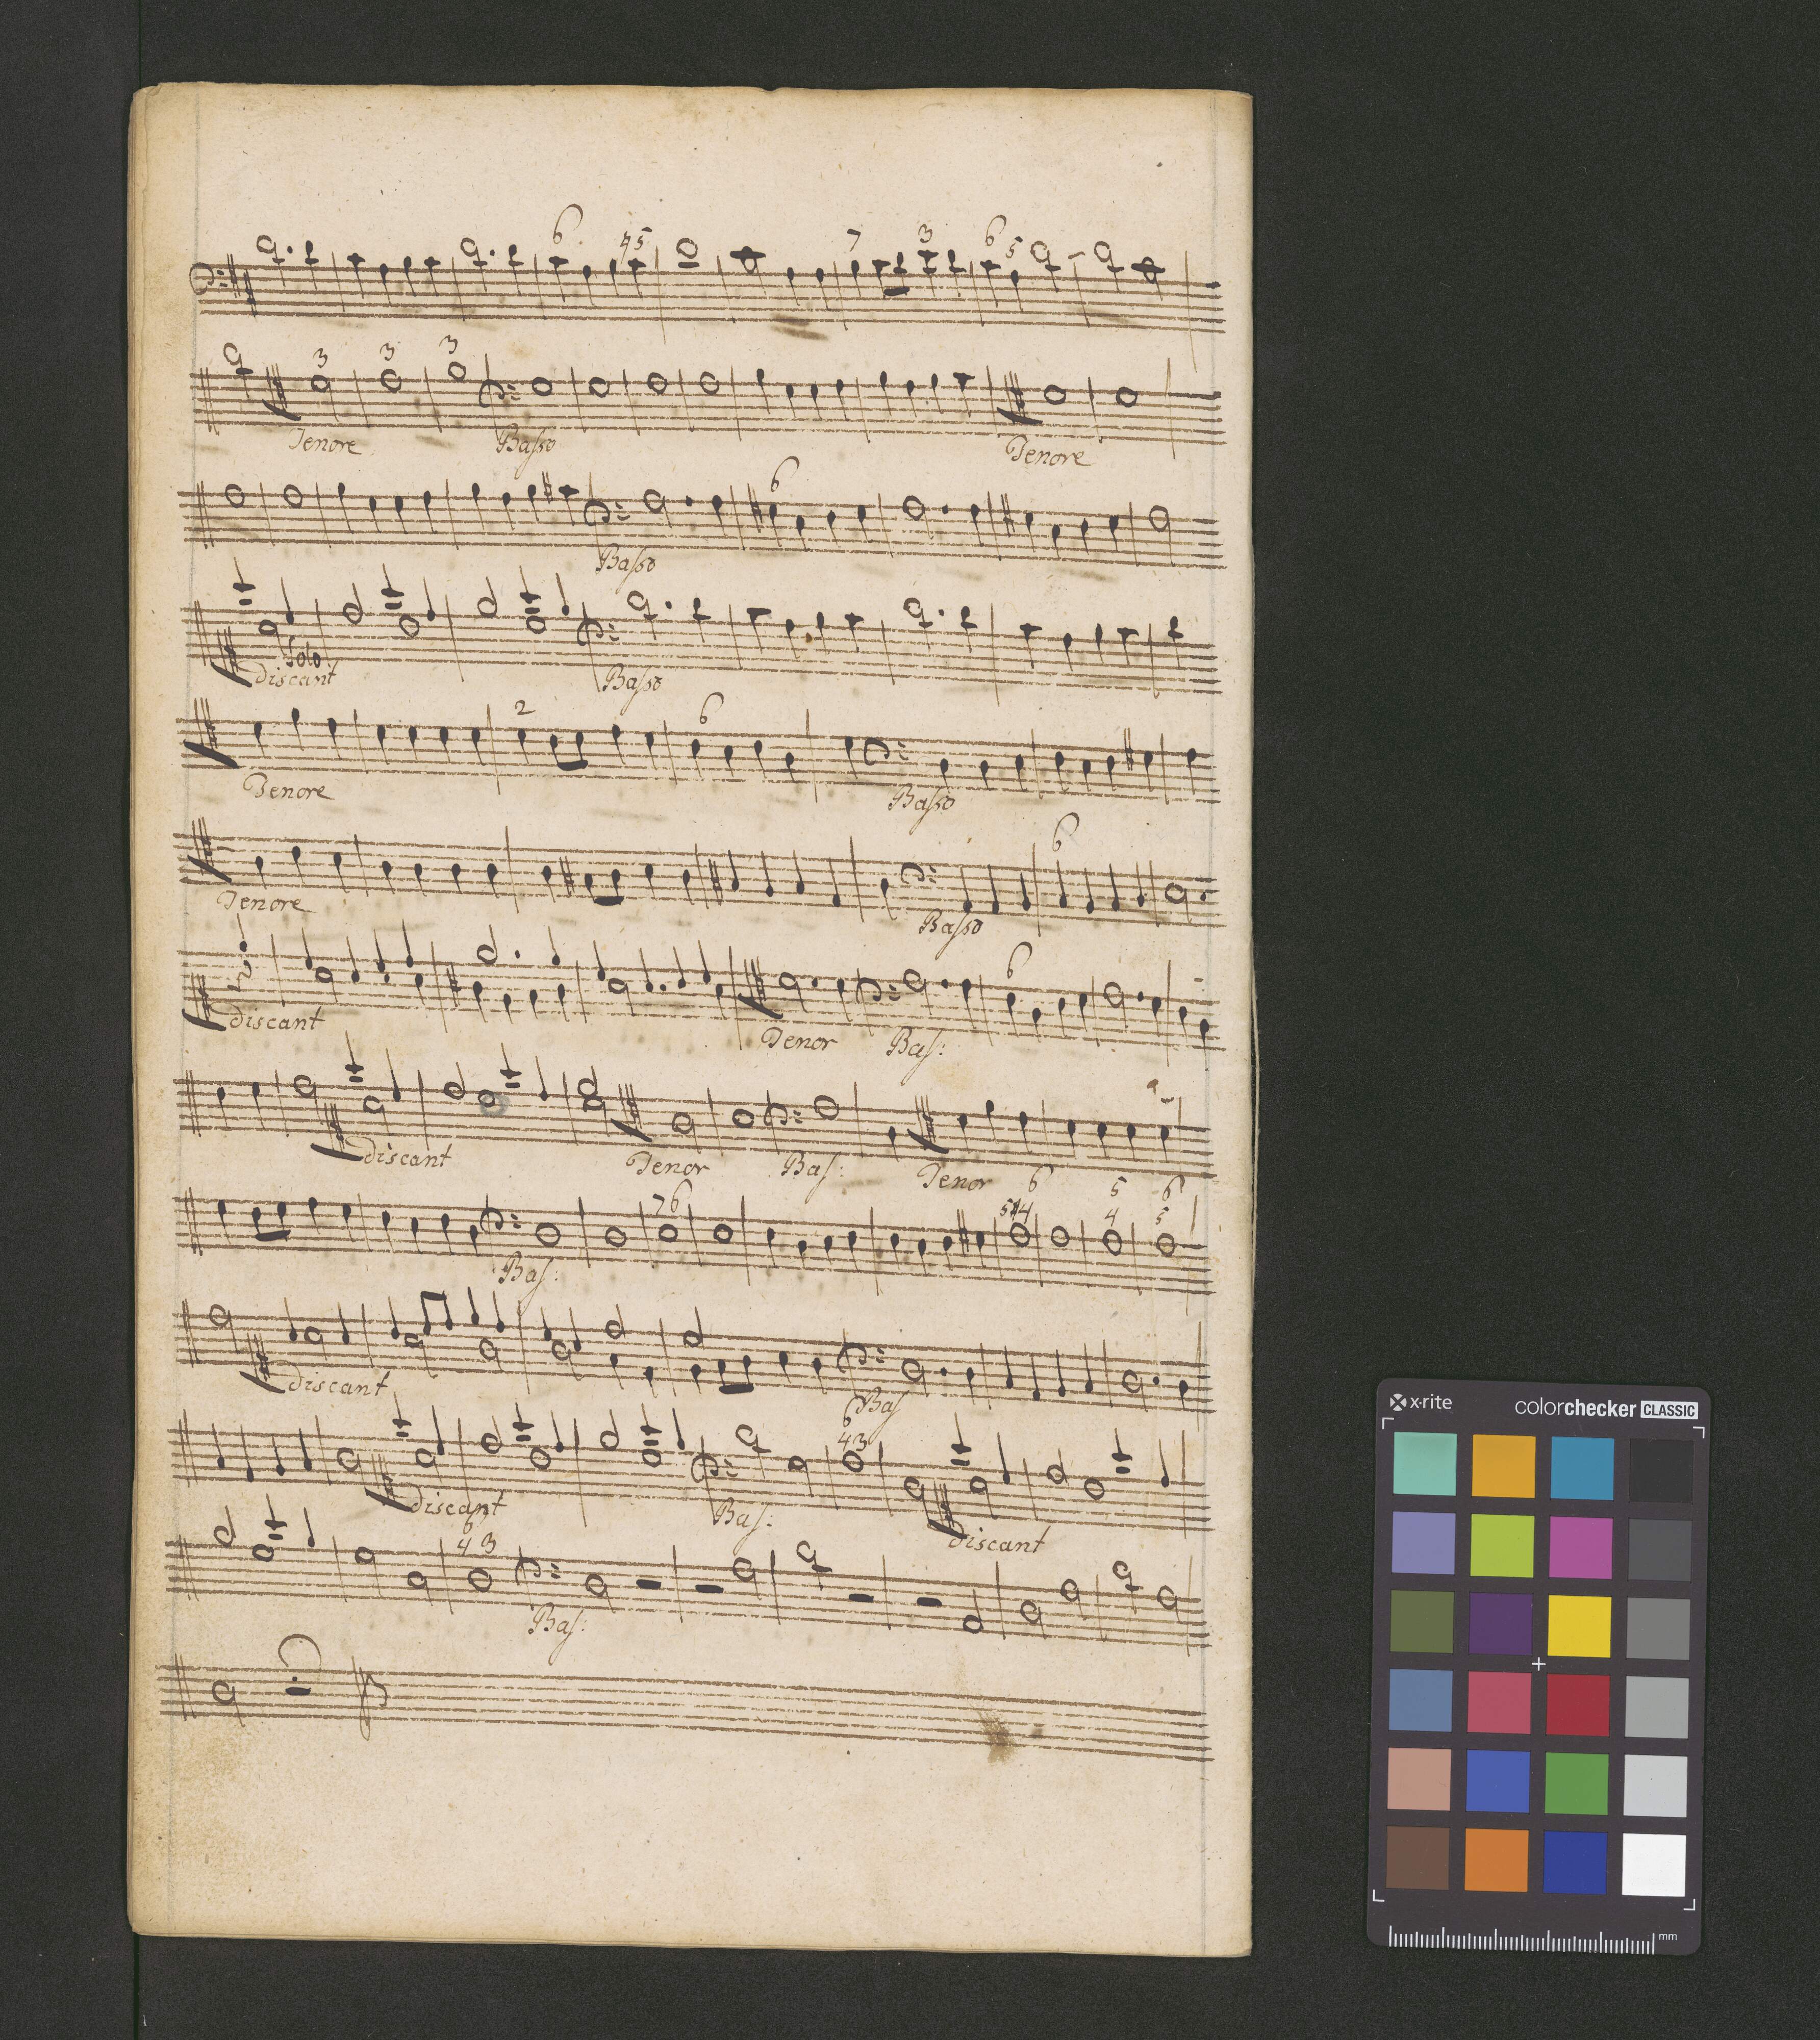 6 4 5 7 3 6 5
3 3 3
Tenore Basso Tenore
6
Basso
Solo
discant Basso
2 6
Tenore Basso
6
Tenore Basso
6
discant Tenor Bas:
discant Tenor Bas: Tenor
7 6 6 5 6
4 4 5
Bas:
discant Bas
6
4 3
discant Bas: discant
6
4 3
Bas:
x-rite colorchecker CLASSIC
mm